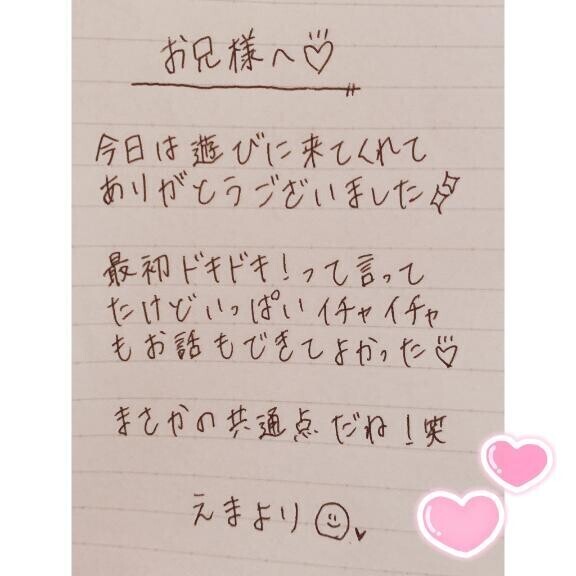 お兄様へ♡
今日は遊びに来てくれて
ありがとうございました
最初ドキドキ!って言って
たけどいっぱいイチャイチャ
もお話もできてよかった♡
まさかの共通点だね!笑
えまより